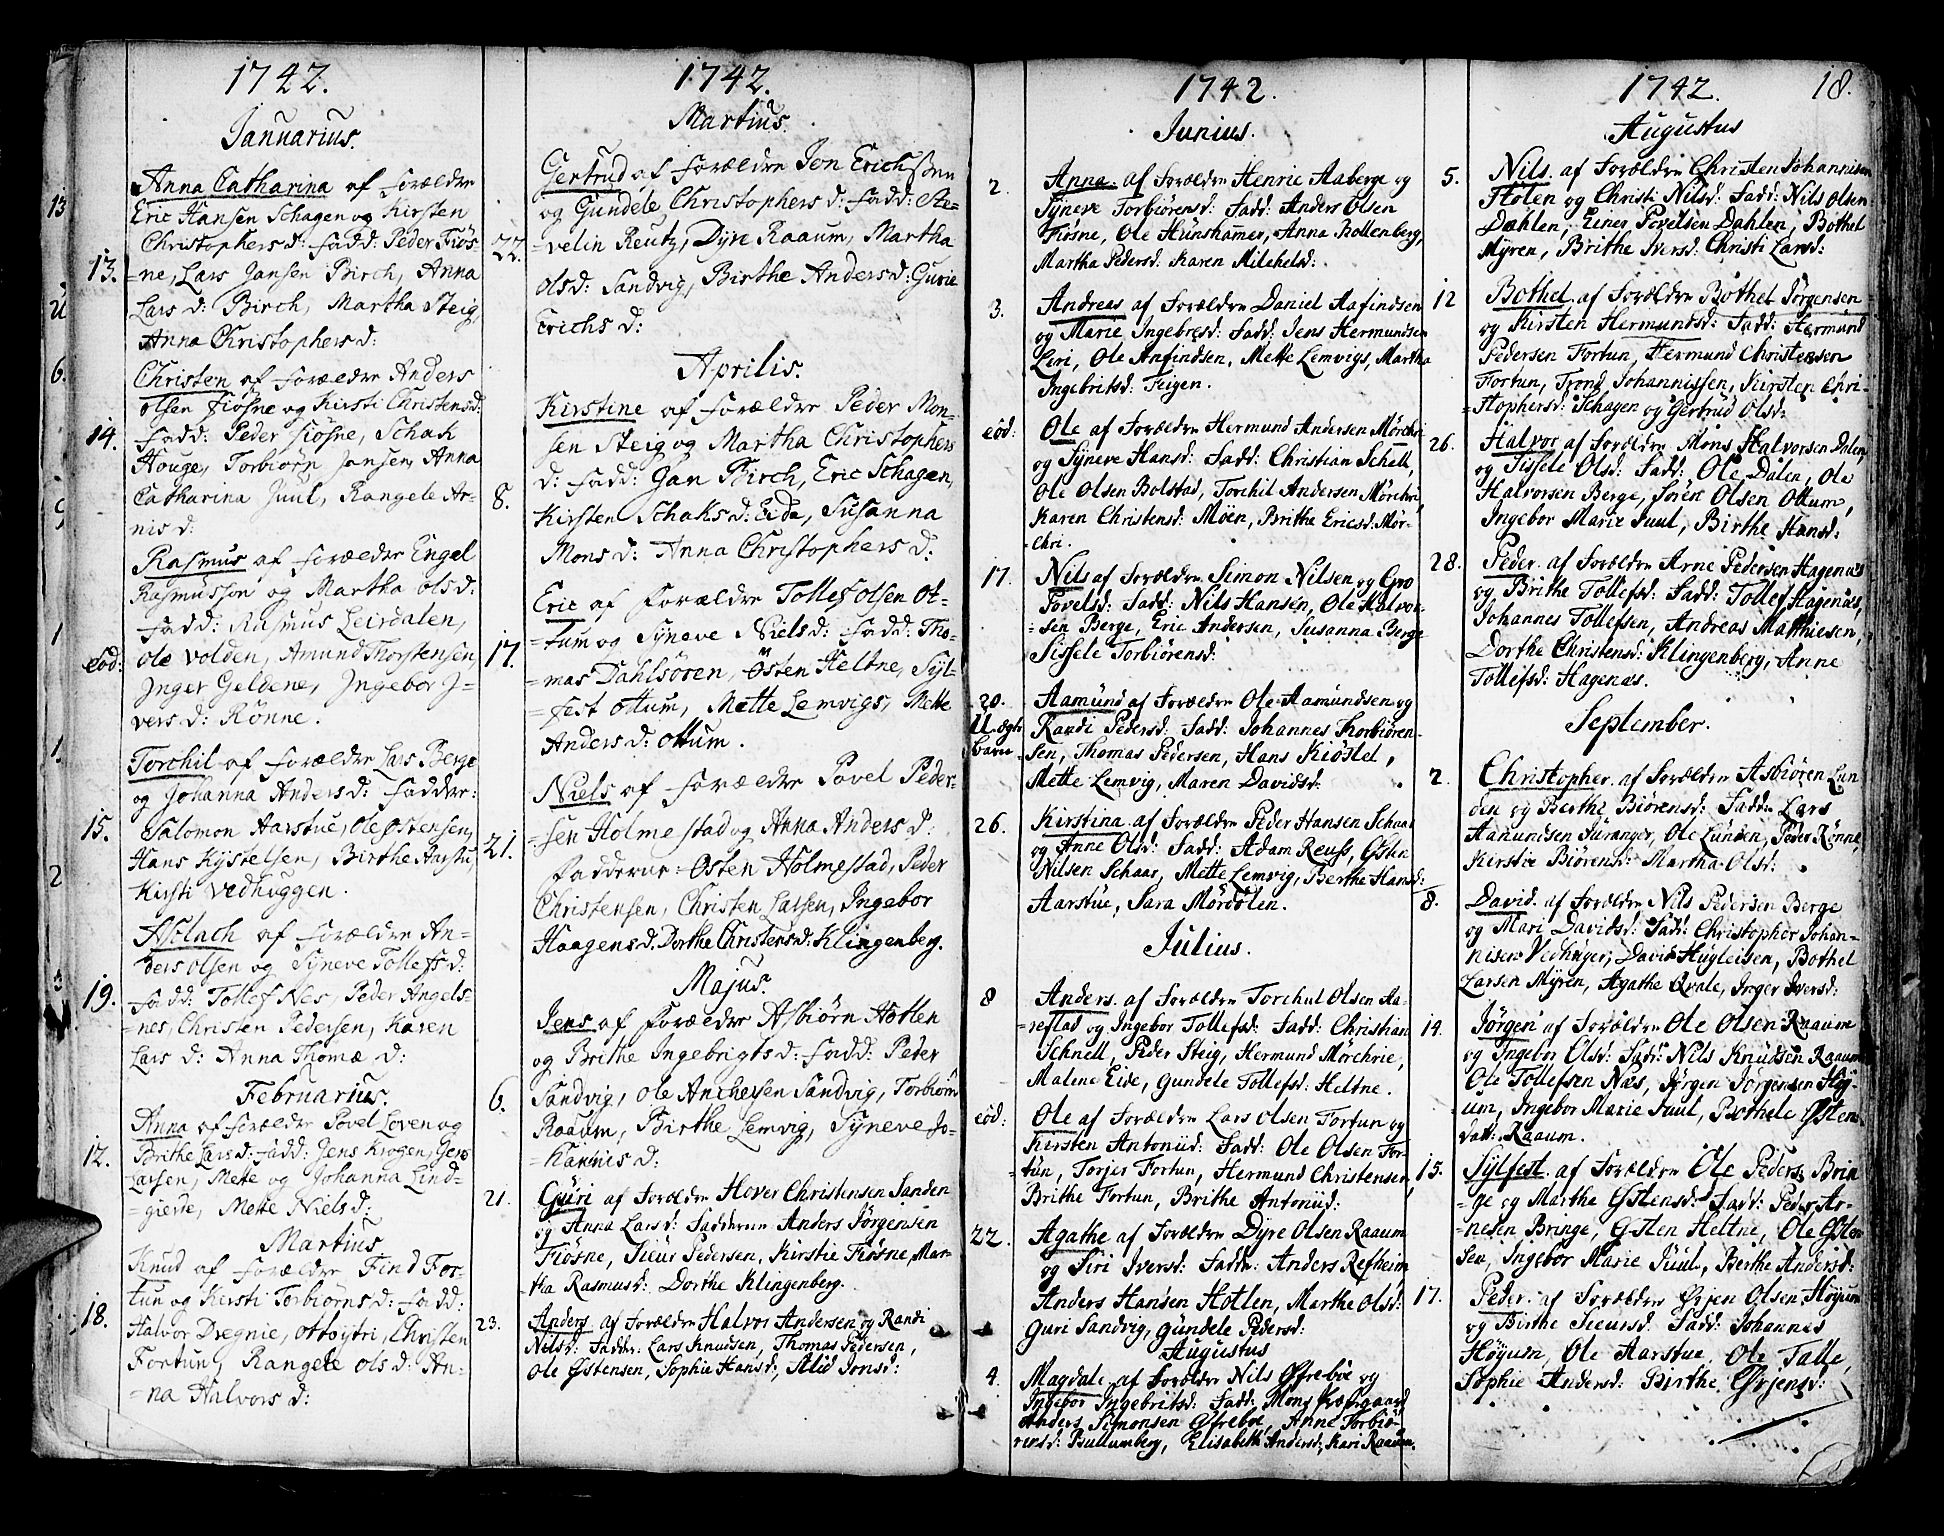 1742.
Januarius.
Anna Catharina af forældre
Eric Hansen Schagen og Kirsten
Christophers d: fadd: Peder Fiös
13. =ne, Lars Jansen Birch, Anna
Lars d: Birch, Martha Steig,
Anna Christophers d:
Christen af forældre Anders
olsen Fiösne og Kirsti Christensd:
14. fadd: Peder Fiösne, Schak
Houge, Torbiørn Jansen, Anna
Catharina Juul, Rangele Ar-
nis d:
Rasmus af forældre Engel
Rasmusson og Martha ols d:
fadd: Rasmus Leirdalen,
eod: ole Volden, Amund Thorstensen,
Inger Geldene, Ingebor J-
vers d: Rönne.
Torchil af forældre Lars Berge
og Johanna Anders d: fadder:
15. Salomon Aarstue, Ole Østensen,
Hans Kystelsen, Birthe Aarstu,
Kirsti Vedhuggen.
Aslach af forældre An-
ders olsen og Syneve Tollefs d:
19. fadd: Tollef Nes, Peder Angels-
=nes, Christen Pedersen, Karen
Lars d: Anna Thomæ d:
Februarius.
Anna af forældre Povel Loven og
12. Brithe Lars d: fadd: Jens Krogen, Gero
Larsen, Mette og Johanna Lind-
=gierde, Mette Niels d:
Martius
Knud af forældre Find For-
tun og Kirsti Torbiørns d: fadd:
18. Halvor Dregnie, Otto ytri, Christen
Fortun, Rangele ols d: An-
=na Halvors d:
1742.
Martius.
Gertrud af forældre Jon Erichssøn
og Gundele Christophers d: fadd: Ae-
22. -velin Reutz, Dyre Raaum, Martha
olsd: Sandvig, Birthe Anders d: Gurie
Erichs d:
Aprilis.
Kirstine af forældre Peder Mon-
sen Steig og Martha Christophers
d: fadd: Jan Birch, Eric Schagen,
8. Kirsten Schaks d: Eide, Susanna
Mons d: Anna Christophers d:
Eric af forældre Tollef olsen Ot-
=tum og Syneve Niels d: fadd: Tho-
17. =mas Dahlsören, Østen Heltne, Syl-
=fest ottum, Mette Lemvigs, Mette
Anders d: ottum.
Niels af forældre Povel Peder-
=sen Holmestad og Anna Anders d:
21. fadderne Østen Holmestad, Peder
Christensen, Christen Larsen, Ingebor
Haagens d. Dorthe Christens d: Klingenberg.
Majus.
Jens af forældre Asbiørn Hotlen
og Brithe Ingebrigts d: fadd: Peder
6. Sandvig, ole Anchersen Sandvig, Torbiørn
Raaum, Birthe Lemvig, Syneve Jo-
=hannis d:
21. Guri af forældre Hover Christensen Sanden
og Anna Lars d: Fadderne Anders Jörgensen
Fiösne, Sieur Pedersen, Kirstie Fiösne, Mar-
tha Rasmus d: Dorthe Klingenberg.
23. Anders af forældre Halvor Andersen og Randi
Nils d: Fadder: Lars Knudsen, Thomas Pedersen,
Ole Østensen, Sophie Hans d:, Alid Jons d:
1742.
Junius.
2. Anna af Forældre Henric Aaberge og
Syneve Torbiörensd: Fadd: Anders Olsen
Fiosne, Ole Hunshamer, Anna Mollenberg,
Martha Pedersd: Karen Michelsd:
3. Andreas af Forældre Daniel Aafindsen
og Marie Ingebresd: Fadd: Jens Hermundsen
Leri, Ole Anfindsen, Mette Lemvigs, Martha
Ingebritsd: Feigen.
eod: Ole af Forældre Hermund Andersen Mörchri
og Syneve Hansd: Fadd: Christian Schell,
Ole Olsen Bolstad, Torchil Andersen Mörchri,
Karen Christensd: Moen, Brithe Ericsd: Mör-
chri.
17. Nils af Forældre Simon Nilsen og Gro
Povelsd: Fadd: Nils Hansen, Ole Halvor-
=sen Berge, Eric Andersen, Susanna Berge
Sissele Torbiörensd:
20. Aamund af Forældre Ole Aamundsen og
Uægte Randi Pedersd: Fadd: Johannes Thorbiören-
barn sen, Thomas Pedersen, Hans Kiöstel,
Mette Lemvig, Maren Davidsd:
26. Kirstina af Forældre Peder Hansen Schaar
og Anne Olsd: Fadd: Adam Reuss, Østen
Nilsen Schaar, Mette Lemvig, Berthe Hansd:
Aarstue, Sara Mördölen.
Julius.
8 Anders af Forældre Torchul Olsen Aa-
=restad og Ingebor Tollefsd: Fadd: Christian
Schnell, Peder Steig, Hermund Mörchrie,
Malene Eide, Gundele Tollefsd: Heltne.
eod: Ole af Forældre Lars Olsen Fortun og
Kersten Antoniid: Fadd: Ole Olsen For-
=tun, Torjer Fortun, Hermund Christensen,
Brithe Fortun, Brithe Antoniid:
22. Agathe af Forældre Dyre Olsen Raaum
og Siri Iversd: Fadd: Anders Refheim,
Anders Hansen Hotlen, Marthe Olsd:
Guri Sandvig, Gundele Pedersd:
Augustus
4. Magdale af Forældre Nils Øfreboe og
Ingebor Ingebritsd: Fadd: Mons Kroegaard,
Anders Simonsen Øfreboe, Anne Torbiö-
rensd: Bullumberg, Elisabeth Andersd: Kari Raaum.
1742. 18.
Augustus
5. Nils af Forældre Christen Johannisen
Holen og Christi Nilsd: Fadd: Nils Olsen
Dahlen, Einer Povelsen Dahlen, Bothel
Myren, Brithe Iversd: Christi Larsd:
12 Bothel af Forældre Bothel Jörgensen
og Kirsten Hermundsd: Fadd: Hermund
Pedersen Fortun, Hermund Christensen
Fortun, Trond Johannissen, Kirsten Chri-
=stophersd: Schagen og Gertrud Olsd:
26. Halvor af Forældre Mons Halvorsen Dalen,
og Sissele Olsd: Fadd: Ole Dalen, Ole
Halvorsen Berge, Sören Olsen Ottum,
Ingebor Marie Juul, Birthe Hansd:
28. Peder af Forældre Arne Pedersen Hagenæs
og Brithe Tollefsd: Fadd: Tollef Hagenæs,
Johannes Tollefsen, Andreas Matthiesen,
Dorthe Christensd: Klingenberg, Anne
Tollefsd: Hagenæs.
September.
2. Christopher af Forældre Asbiören Lun-
den og Berthe Biörensd: Fadd: Lars
Aamundsen Furanger, Ole Lunden, Peder Rönne,
Kirstie Biörensd: Martha Olsd:
8. David af Forældre Nils Pedersen Berge
og Mari Davidsd: Fadd: Christopher Johan-
nisen Vedhuger, David Hugleisen, Bothel
Larsen Myren, Agathe Qvale, Inger Iversd:
14. Jörgen af Forældre Ole Olsen Raaum
og Ingebor Olsd: Fadd: Nils Knudsen Raaum
Ole Tollefsen Næs, Jörgen Jörgensen Höy-
um, Ingebor Marie Juul, Bothele Østens
datt: Raaum.
15. Sylfest af Forældre Ole Peders: Brin
=ge og Martha Østensd: Fadd: Peder Ar-
nesen Bringe, Østen Heltne, Ole Østen
sen, Ingebor Marie Juul, Berthe Andersd:
17. Peder af Forældre Ørjen Olsen Höyum
og Birthe Sieursd: Fadd: Johannes
Höyum, Ole Aarstue, Ole Talle,
Sophie Andersd: Birthe Ørjensd: